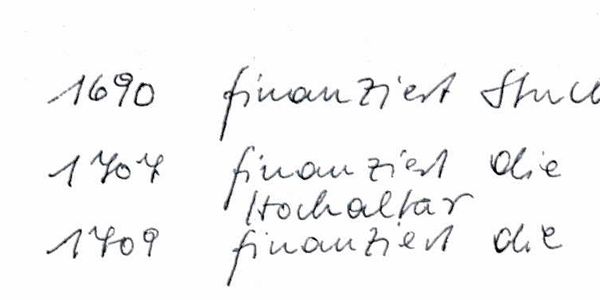 1690 finanziert Stuc
1707 finanziert die
Hochaltar
1709 finanziert die